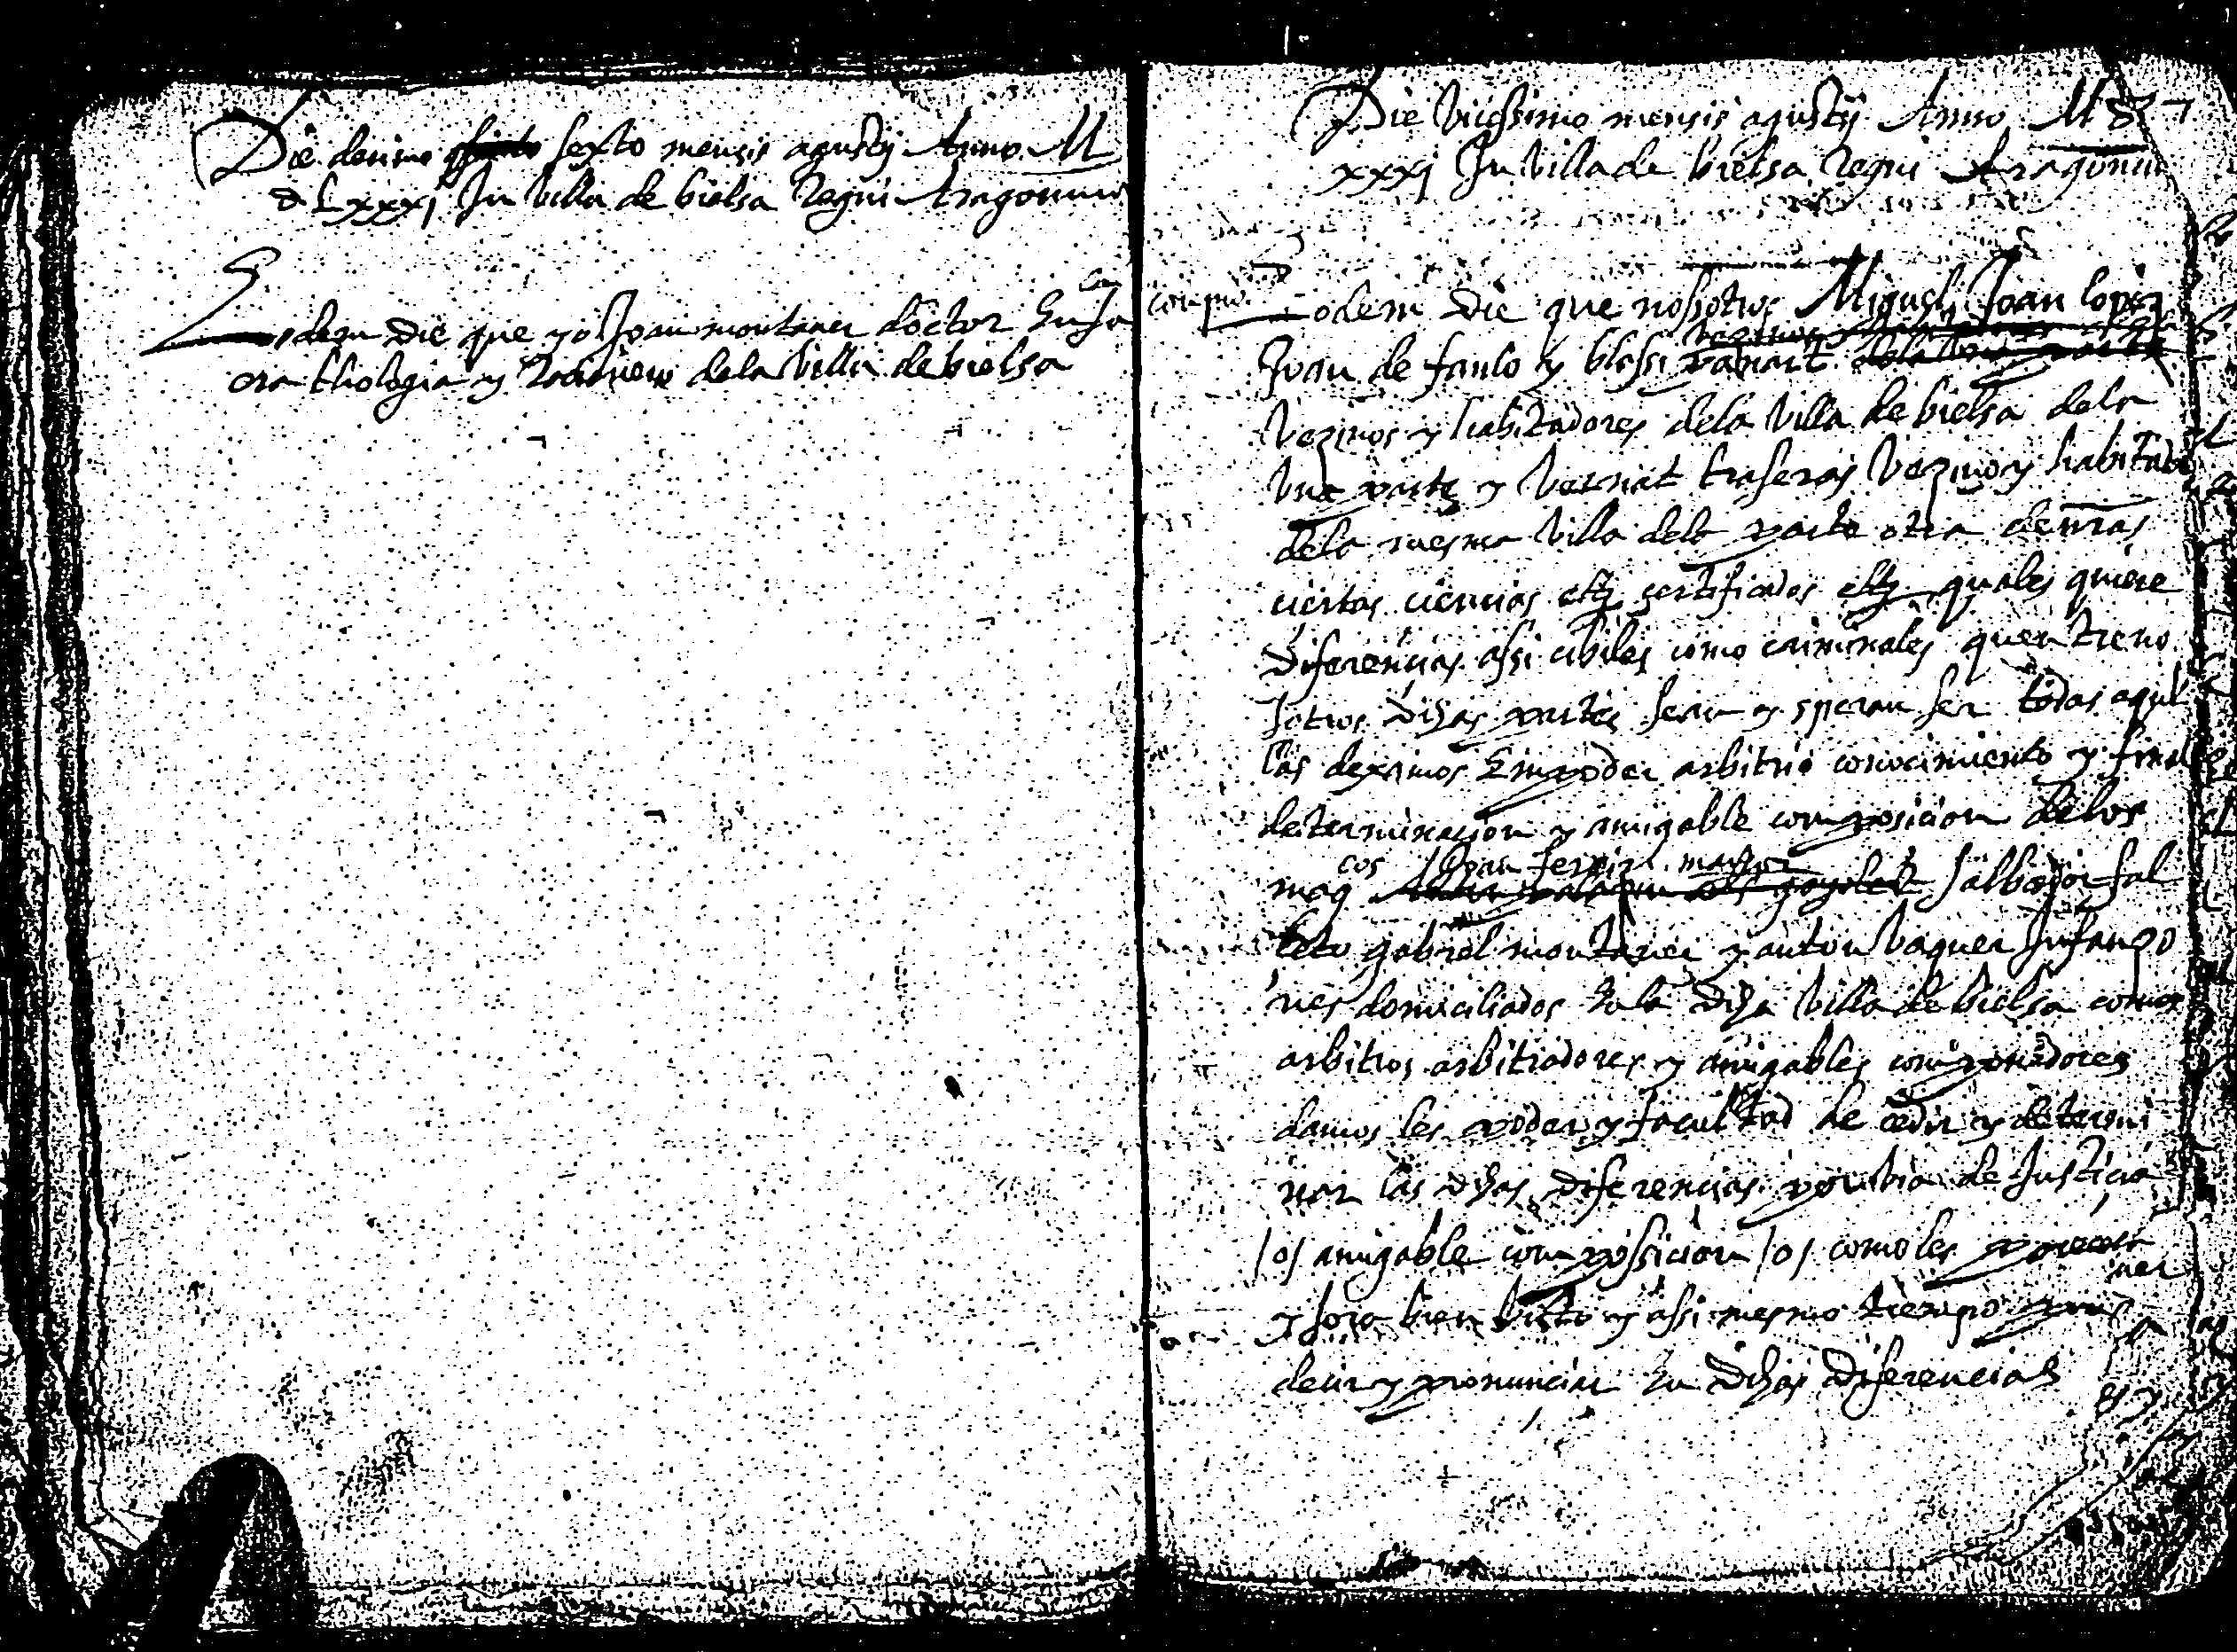 Die decimo sexto mensis agustij Anno M
d Lxxxj In villa de bielsa Regni Aragonum
Eadem die que yo Joan montaner doctor En sa
cra thologia y Racionero dela villa de bielsa
Die vicessimo mensis agustij Anno M
xxxj In villa de bielsa regni Aragonu
compro
Eodem die que nosotros Miguel Joan lopez
Juan de fanlo y blassi
vezinos y habitadores dela villa de bielsa dela
una parte y bernat traseras vezino y habitado
dela mesma villa dela parte otra de nras
ciertas ciencias etz certificados etz quales quiere
diferencias assi cibiles como criminales quentreno
sotros dichas partes sean y speran ser todas aque
llas deximos Empoder arbitrio conocimiento y final
determinacion y amigable composicion delos
cos Joan ferrer mayor
mag salbador fal
ceto gabriel montaner y anton baquer Infanço
nes domiciliados En la dicha villa de bielsa como
arbitros arbitradores y amigables componedores
damos les poder y facultad de dedir y determi
nar las dichas diferencias por bia de Justicia
/o/ amigable compossicion /o/ como les parecera
y sera bien bisto y assi mesmo tiempo para
decir y pronunciar En dichas diferencias